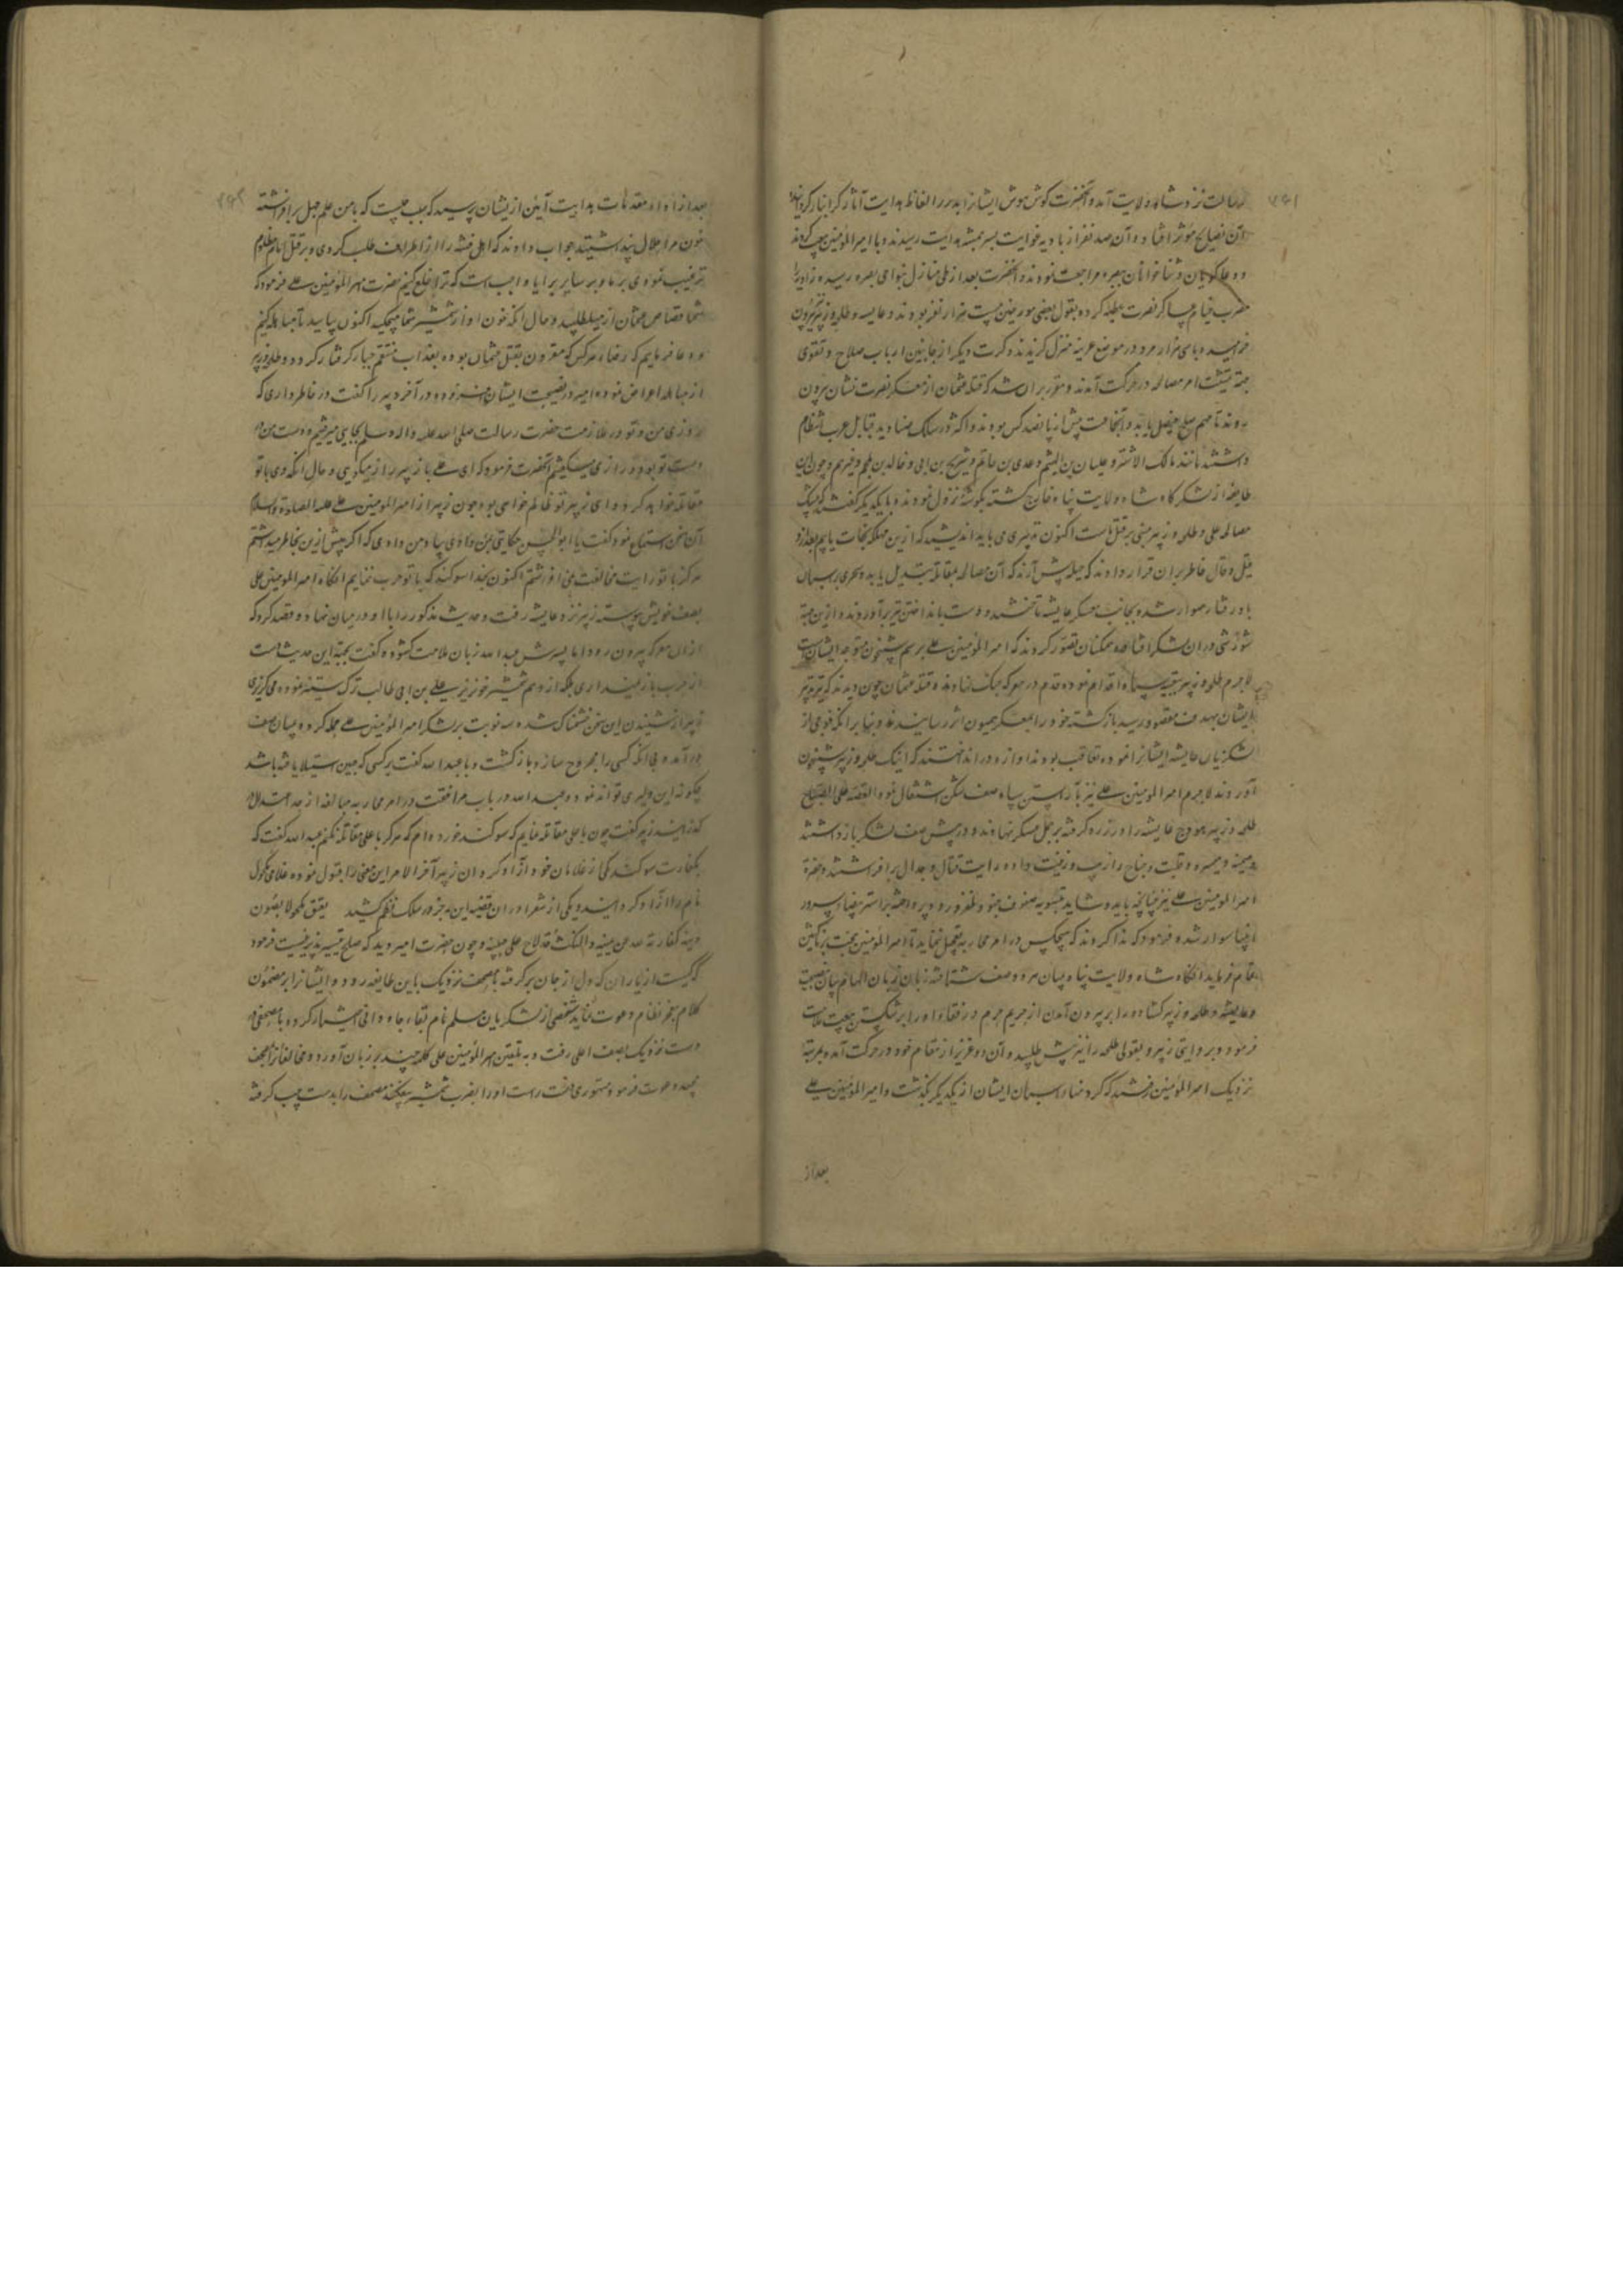 رسالت نزد شاه ولایت آمد و آنحضرت گوش هوش ایشانرا بدرر الفاظ هدایت آثار گرانبار گردانیده
آن نصایح مؤثر افتاده آن صد نفر از بادیه غوایت بسرچشمه هدایت رسیدند و با امیرالمؤمنین بیعت کردند
و دعاگویان و ثناخوانان ببصره مراجعت نمودند و آنحضرت بعد از طی منازل بنواحی بصره رسیده زاویه را
مضرب خیام عساکر نصرت کرده بقول بعضی مورخین بیست هزار نفر بودند و عایشه و طلحه و زبیر بیرون
خرامیده با سی هزار مرد در موضع خریبه منزل گزیدند و کرت دیگر از جانبین ارباب صلاح و تقوی
جهة تمشیت امر مصالحه در حرکت آمدند و مقرر بران شد که قتله عثمان از معسکر نصرت نشان بیرون
روند تا مهم صلح فیصل یابد و آنجماعت پیش از پانصد کس بودند و اکثر در سلک صنادید قبایل عرب انتظام
داشتند مانند مالک الاشتر و علبان بن الهیثم و عدی بن حاتم و شریح بن ابی و خالد بن ملجم و غیرهم و چون این
طایفه از لشکرگاه شاه ولایت پناه خارج گشته بگوشه نزول نمودند و با یکدیگر گفتند که بیشک
مصالحه علی و طلحه و زبیر مبنی بر قتل ماست اکنون تدبیری می باید اندیشید که ازین مهلکه نجات یابیم بعد از
قیل و قال خاطر بران قرار دادند که حیله پیش آرند که آن مصالحه بمقاتله تبدیل یابد و سحری بر اسبان
بادرفتار سوار شده بجانب معسکر عایشه تاختند و دست بانداختن تیر برآوردند و ازین جهة
شورشی دران لشکر افتاده همکنان تصور کردند که امیرالمؤمنین علی برسم شبیخون متوجه ایشان
لاجرم طلحه و زبیر بتعبیه سپاه اقدام نموده قدم در معرکه جنگ نهادند و قتله عثمان چون دیدند که تیر تدبیر
ایشان بهدف مقصود رسید بازگشته خود را بمعسکر همیون اثر رسانیدند و بنا برانکه فوجی از
لشکریان عایشه ایشانرا نموده تعاقب بودند آوازه در انداختند که اینک طلحه و زبیر شبیخون
آوردند لاجرم امیرالمؤمنین علی نیز بآراستن سپاه صف شکن اشتغال نمود القصه علی الصباح
طلحه و زبیر هودج عایشه را در زره گرفته بر جمل عسکر نهادند و در پیش صف لشکر بازداشتند
و میمنه و میسره و قلب و جناح را ترتیب و زینت داده رایت قتال و جدال برافراشتند و حضرة
امیرالمؤمنین علی نیز چنانچه باید و شاید بتسویه صفوف جنود ظفر ورود پرداخته بر استر بیضاء سرور
انبیا سوار شده فرمود که ندا کردند که هیچکس در امر محاربه تعجیل ننماید تا امیرالمؤمنین حجت بر ناکثین
تمام فرماید آنگاه شاه ولایت پناه میان هر دو صف شتافته زبان الهام بیان بنصیحت
و عایشه و طلحه و زبیر گشاده و را بر بیرون آمدن از حریم حرم و رفقاء او را بر شکستن بیعت ملامت
فرمود و بروایتی زبیر و بقولی طلحه را نیز پیش طلبید و آن دو عزیز از مقام خود در حرکت آمده بمرتبه
نزدیک امیرالمؤمنین رفتند که گردنهاء اسبان ایشان از یکدیگر بگذشت و امیرالمؤمنین علی
بعد از
بعد از اداء مقدمات هدایت آیین از ایشان پرسید که سبب چیست که با من علم جدل برافراشته
خون مرا حلال پنداشتید جواب دادند که اهل فتنه را از اطراف طلب کردی و بر قتل امام مظلوم
ترغیب نمودی بر ما و بر سایر برایا واجبست که ترا خلع کنیم حضرت امیرالمؤمنین علی فرمود که
شما قصاص عثمان از من میطلبید و حال آنکه خون او از شمشیر شما میچکد اکنون بیایید تا مباهله کنیم
و دعا فرماییم که رضاء هر کس که مقرون بقتل عثمان بوده بعذاب منتقم جبار گرفتار گردد و طلحه و زبیر
از مباهله اعراض نموده امیر در نصیحت ایشان افزوده و در آخر زبیر را گفت در خاطر داری که
روزی من و تو در ملازمت حضرت رسالت صلی الله علیه و اله و سلم بجایی میرفتیم و دست من در
دست تو بود و رازی میگفتیم آنحضرت فرمود که ای علی با زبیر راز میگویی و حال آنکه وی با تو
مقاتله خواهد کرد و ای زبیر تو ظالم خواهی بود چون زبیر از امیرالمؤمنین علی علیه الصلوة و السلام
این سخن استماع نمود گفت یا ابوالحسن حکایتی بمن دادی بیاد من دادی که اگر پیش ازین بخاطر میداشتم
هرگز با تو رایت مخالفت نمی افراشتم اکنون بخدا سوگند که با تو حرب ننمایم آنگاه امیرالمؤمنین علی
بصف خویش پیوسته زبیر نزد عایشه رفت و حدیث مذکور را با او در میان نهاد و قصد کرد که
ازان معرکه بیرون رود اما پسرش عبدالله زبان ملامت گشوده گفت بجهة این حدیث دست
از حرب باز نمیداری بلکه از وهم شمشیر خونریز علی بن ابی طالب ترک ستیز نموده میگریزی
زبیر از شنیدن این سخن خشمناک شده سه نوبت بر لشکر امیرالمؤمنین علی حمله کرده بمیان صف
درآمد و بی آنکه کسی را مجروح سازد بازگشت و با عبدالله گفت بر کسی که جبن استیلا یافته باشد
چگونه این دلیری تواند نمود و عبدالله در باب موافقت در امر محاربه مبالغه از حد اعتدال در
گذرانید زبیر گفت چون با علی مقاتله نمایم که سوگند خورده ام که هرگز با علی مقاتله نکنم عبدالله گفت که
بکفارت سوگند یکی از غلامان خود آزاد گردان زبیر آخر الامر این معنی را قبول نموده غلامی مکحول
نام را آزاد گردانید و یکی از شعرا دران قضیه این رجز در سلک نظم کشید یعتق مکحولا بصون
دینه کفارة لله عن یمینه و النکث قد لاح علی جبینه و چون حضرت امیر دید که صلح تیسیر پذیر نیست فرمود
که کیست از یاران که دل از جان برگرفته با مصحف نزدیک باین طایفه رود و ایشانرا بر مضمون
کلام معجز نظام دعوت نماید شخصی از لشکریان مسلم نام بقاء جاودانی اختیار کرده با مصحفی در
دست نزدیک بصف اعلی رفت و به تلقین امیرالمؤمنین علی کلمه چند بر زبان آورده مخالفانرا بمصحف
مجید دعوت فرمود متهوری دست راست او را بضرب شمشیر بیفکند مصحف را بدست چپ گرفته